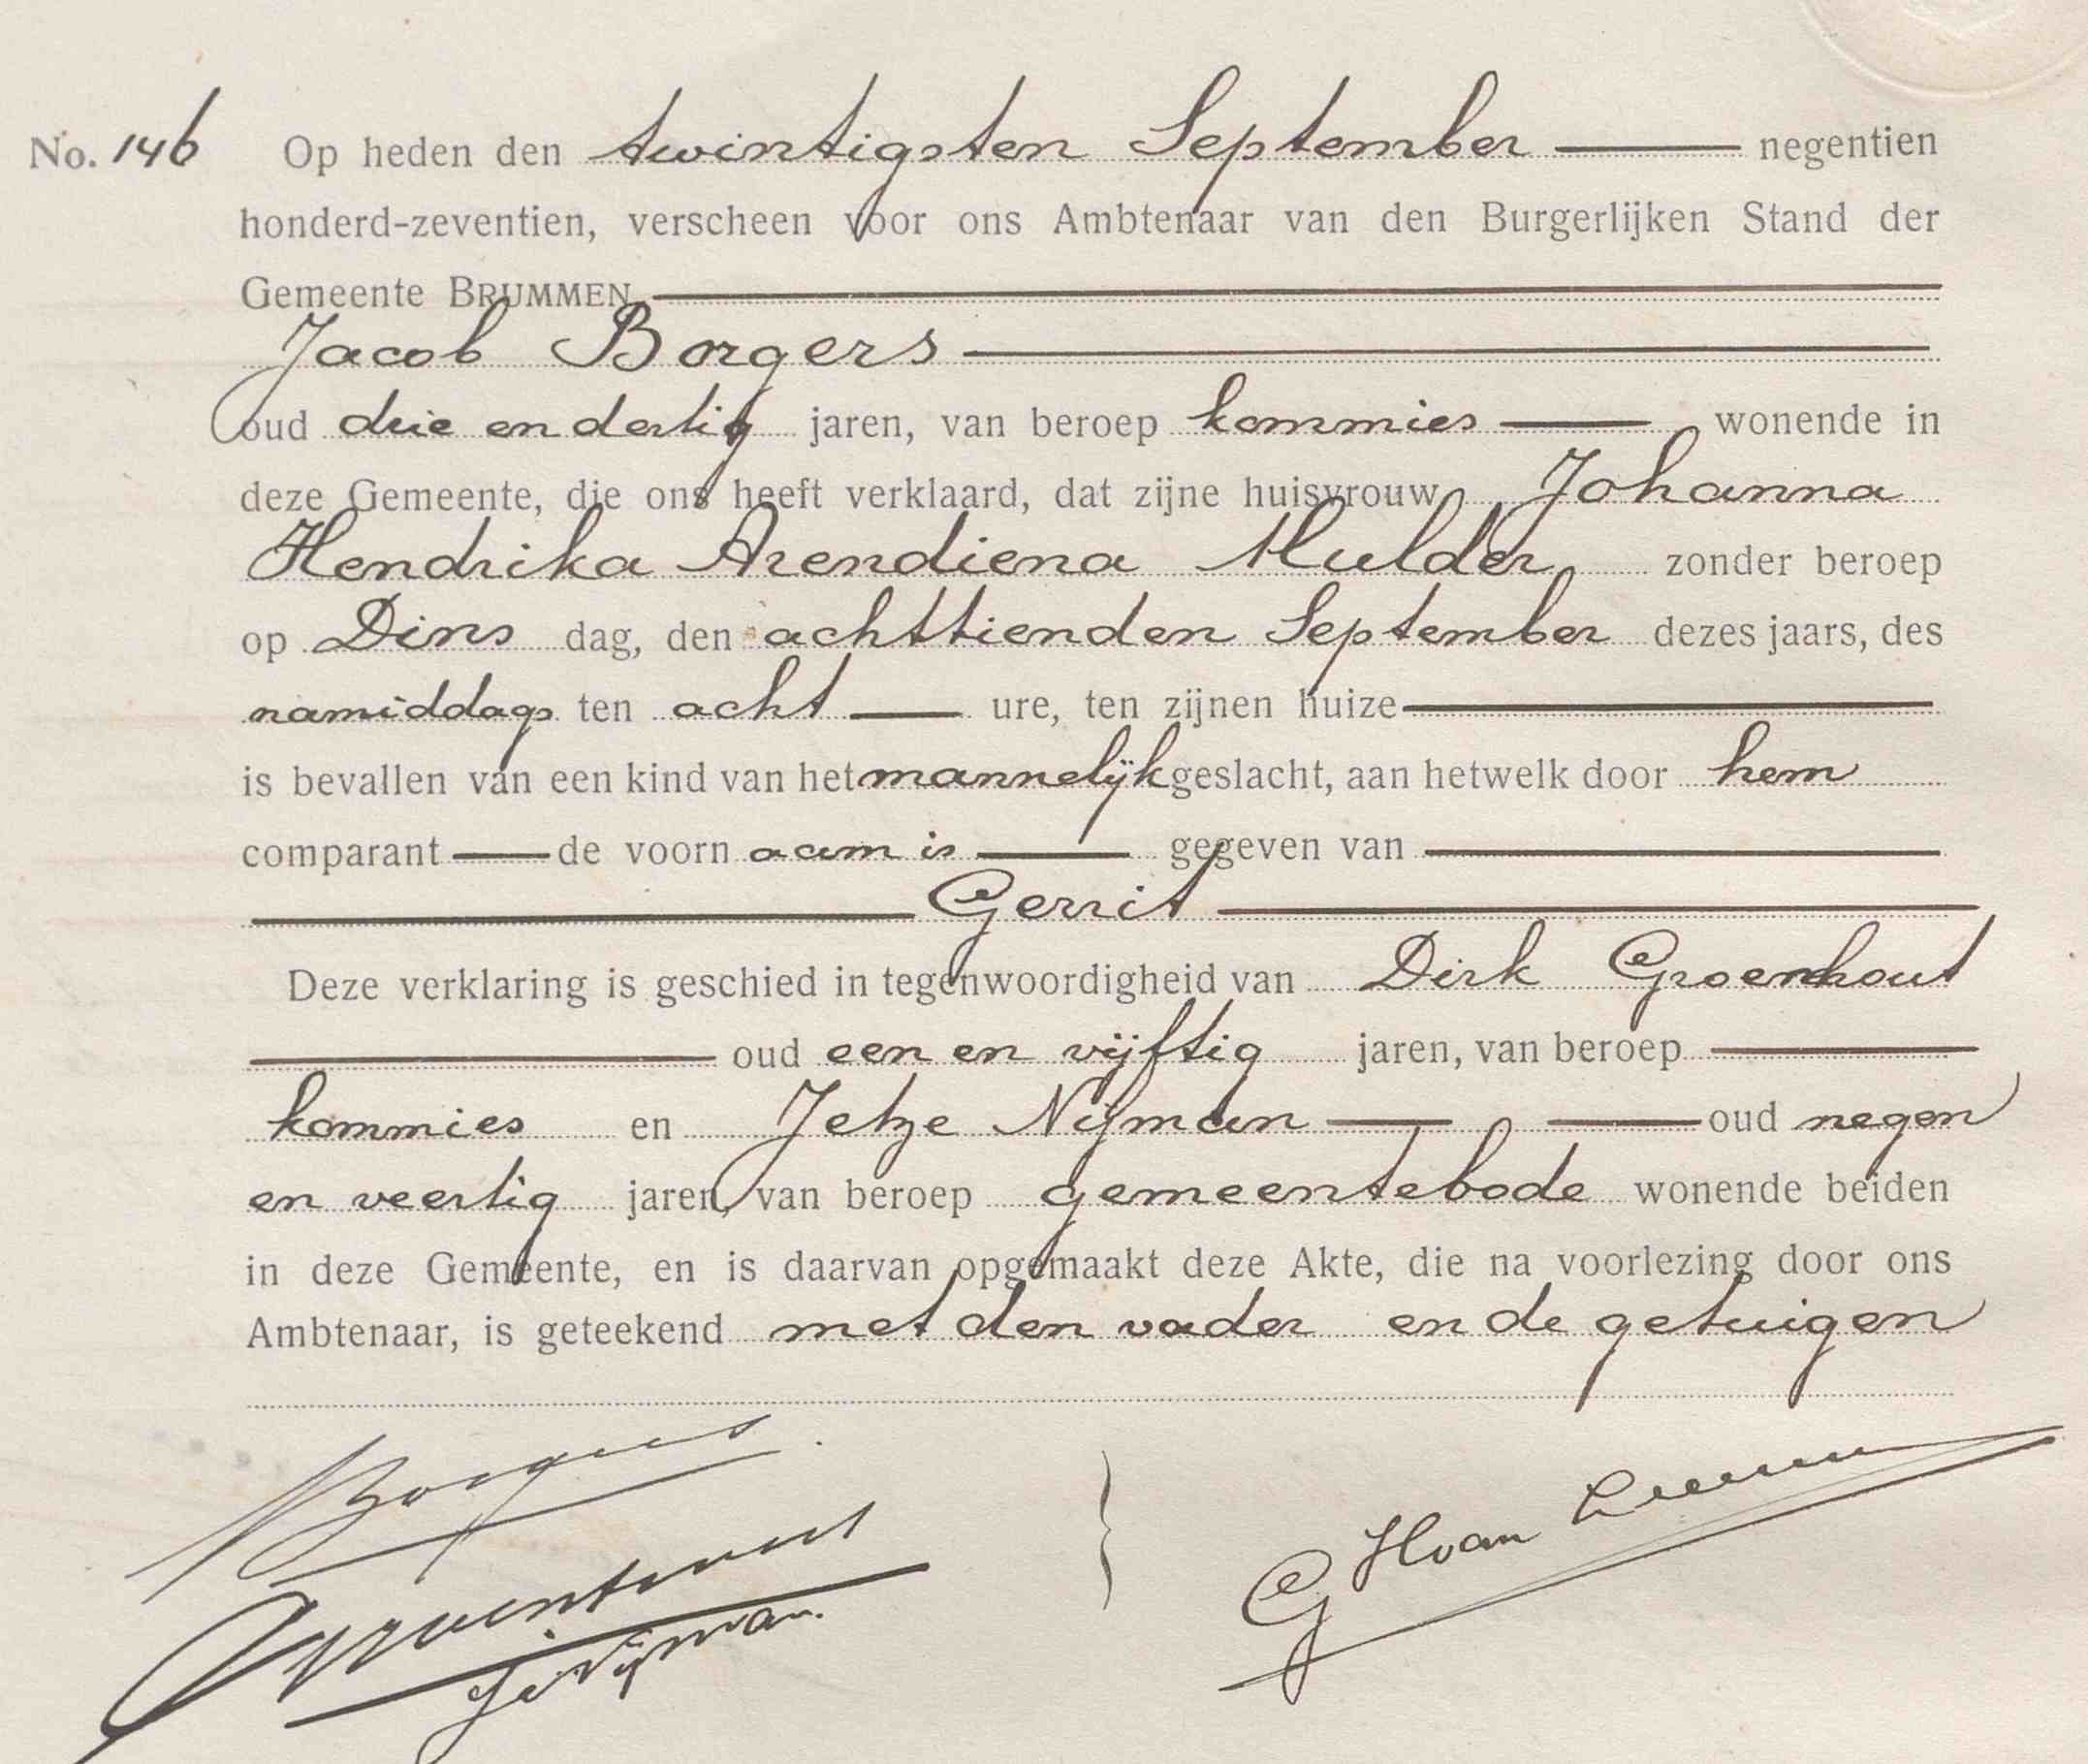 No. 146 Op heden den twintigsten September negentien
honderd-zeventien, verscheen voor ons Ambtenaar van den Burgerlijken Stand der
Gemeente BRUMMEN
Jacob Borgers
oud drie en dertig jaren, van beroep kommies wonende in
deze Gemeente, die ons heeft verklaard, dat zijne huisvrouw Johanna
Hendrika Arendiena Mulder, zonder beroep
op Dins dag, den achttienden September dezes jaars, des
namiddags ten acht ure, ten zijnen huize
is bevallen van een kind van het mannelijk geslacht, aan hetwelk door hem
comparant de voorn aam is gegeven van
Gerrit
Deze verklaring is geschied in tegenwoordigheid van Dirk Groenhout
oud een en vijftig jaren, van beroep
kommies en Jetze Nijman oud negen
en veertig jaren, van beroep gemeentebode wonende beiden
in deze Gemeente, en is daarvan opgemaakt deze Akte, die na voorlezing door ons
Ambtenaar, is geteekend met den vader en de getuigen
JBorgers.
DGroenhout
J. Nijman.
G H van